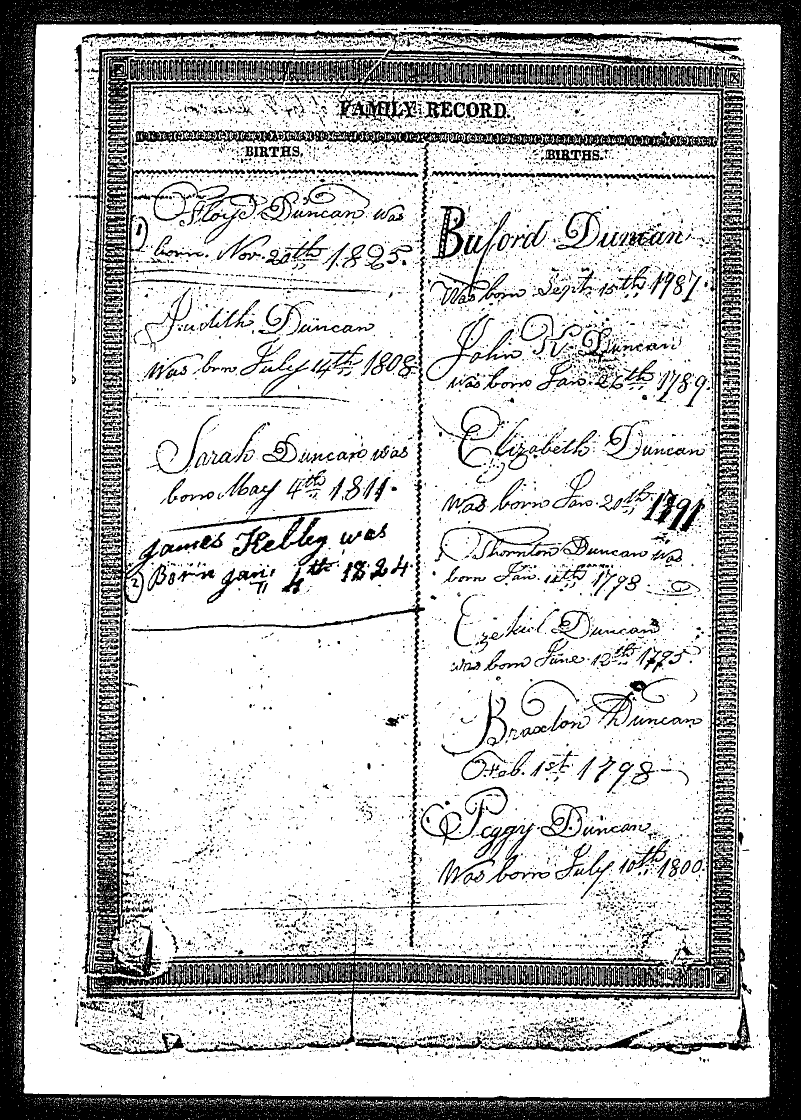 FAMILY RECORD.
BIRTHS.
Floyd Duncan was
1 born. Nov. 20th 1825.
Judith Duncan
Was born July 14th 1808
Sarah Duncan was
born May 4th 1811.
James Kelley was
2 Born Jan. 4th 1824
BIRTHS.
Buford Duncan
Was born Sept. 15th 1987.
John K Duncan
was born Jan. 26th 1789.
Elizabeth Duncan
Was born Jan. 20th 1791
Thornton Duncan was
born Jan. 1798
Ezekiel Duncan
was born June 12th 1795.
Braxton Duncan
Feb. 1st 1798
Peggy Duncan
Was born July 10th 1800.